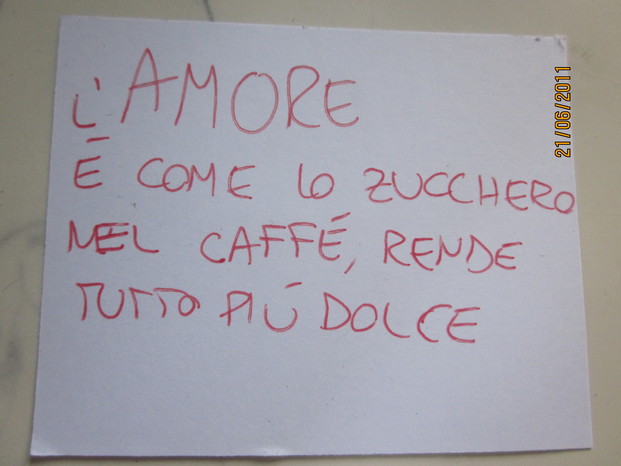 L'AMORE
È COME LO ZUCCHERO
NEL CAFFÉ, RENDE
TUTTO PIÚ DOLCE
21/06/2011